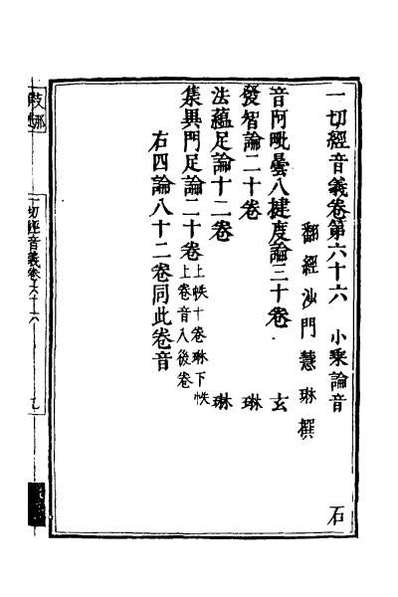 一切經音義卷第六十六 小乘論音 石
翻經沙門慧琳撰
音阿毗曇八揵度論三十卷 玄
發智論二十卷 琳
法蘊足論十二卷 琳
集異門足論二十卷 上帙十卷琳下帙
上卷音入後卷
右四論八十二卷同此卷音
一切經音義卷六十六